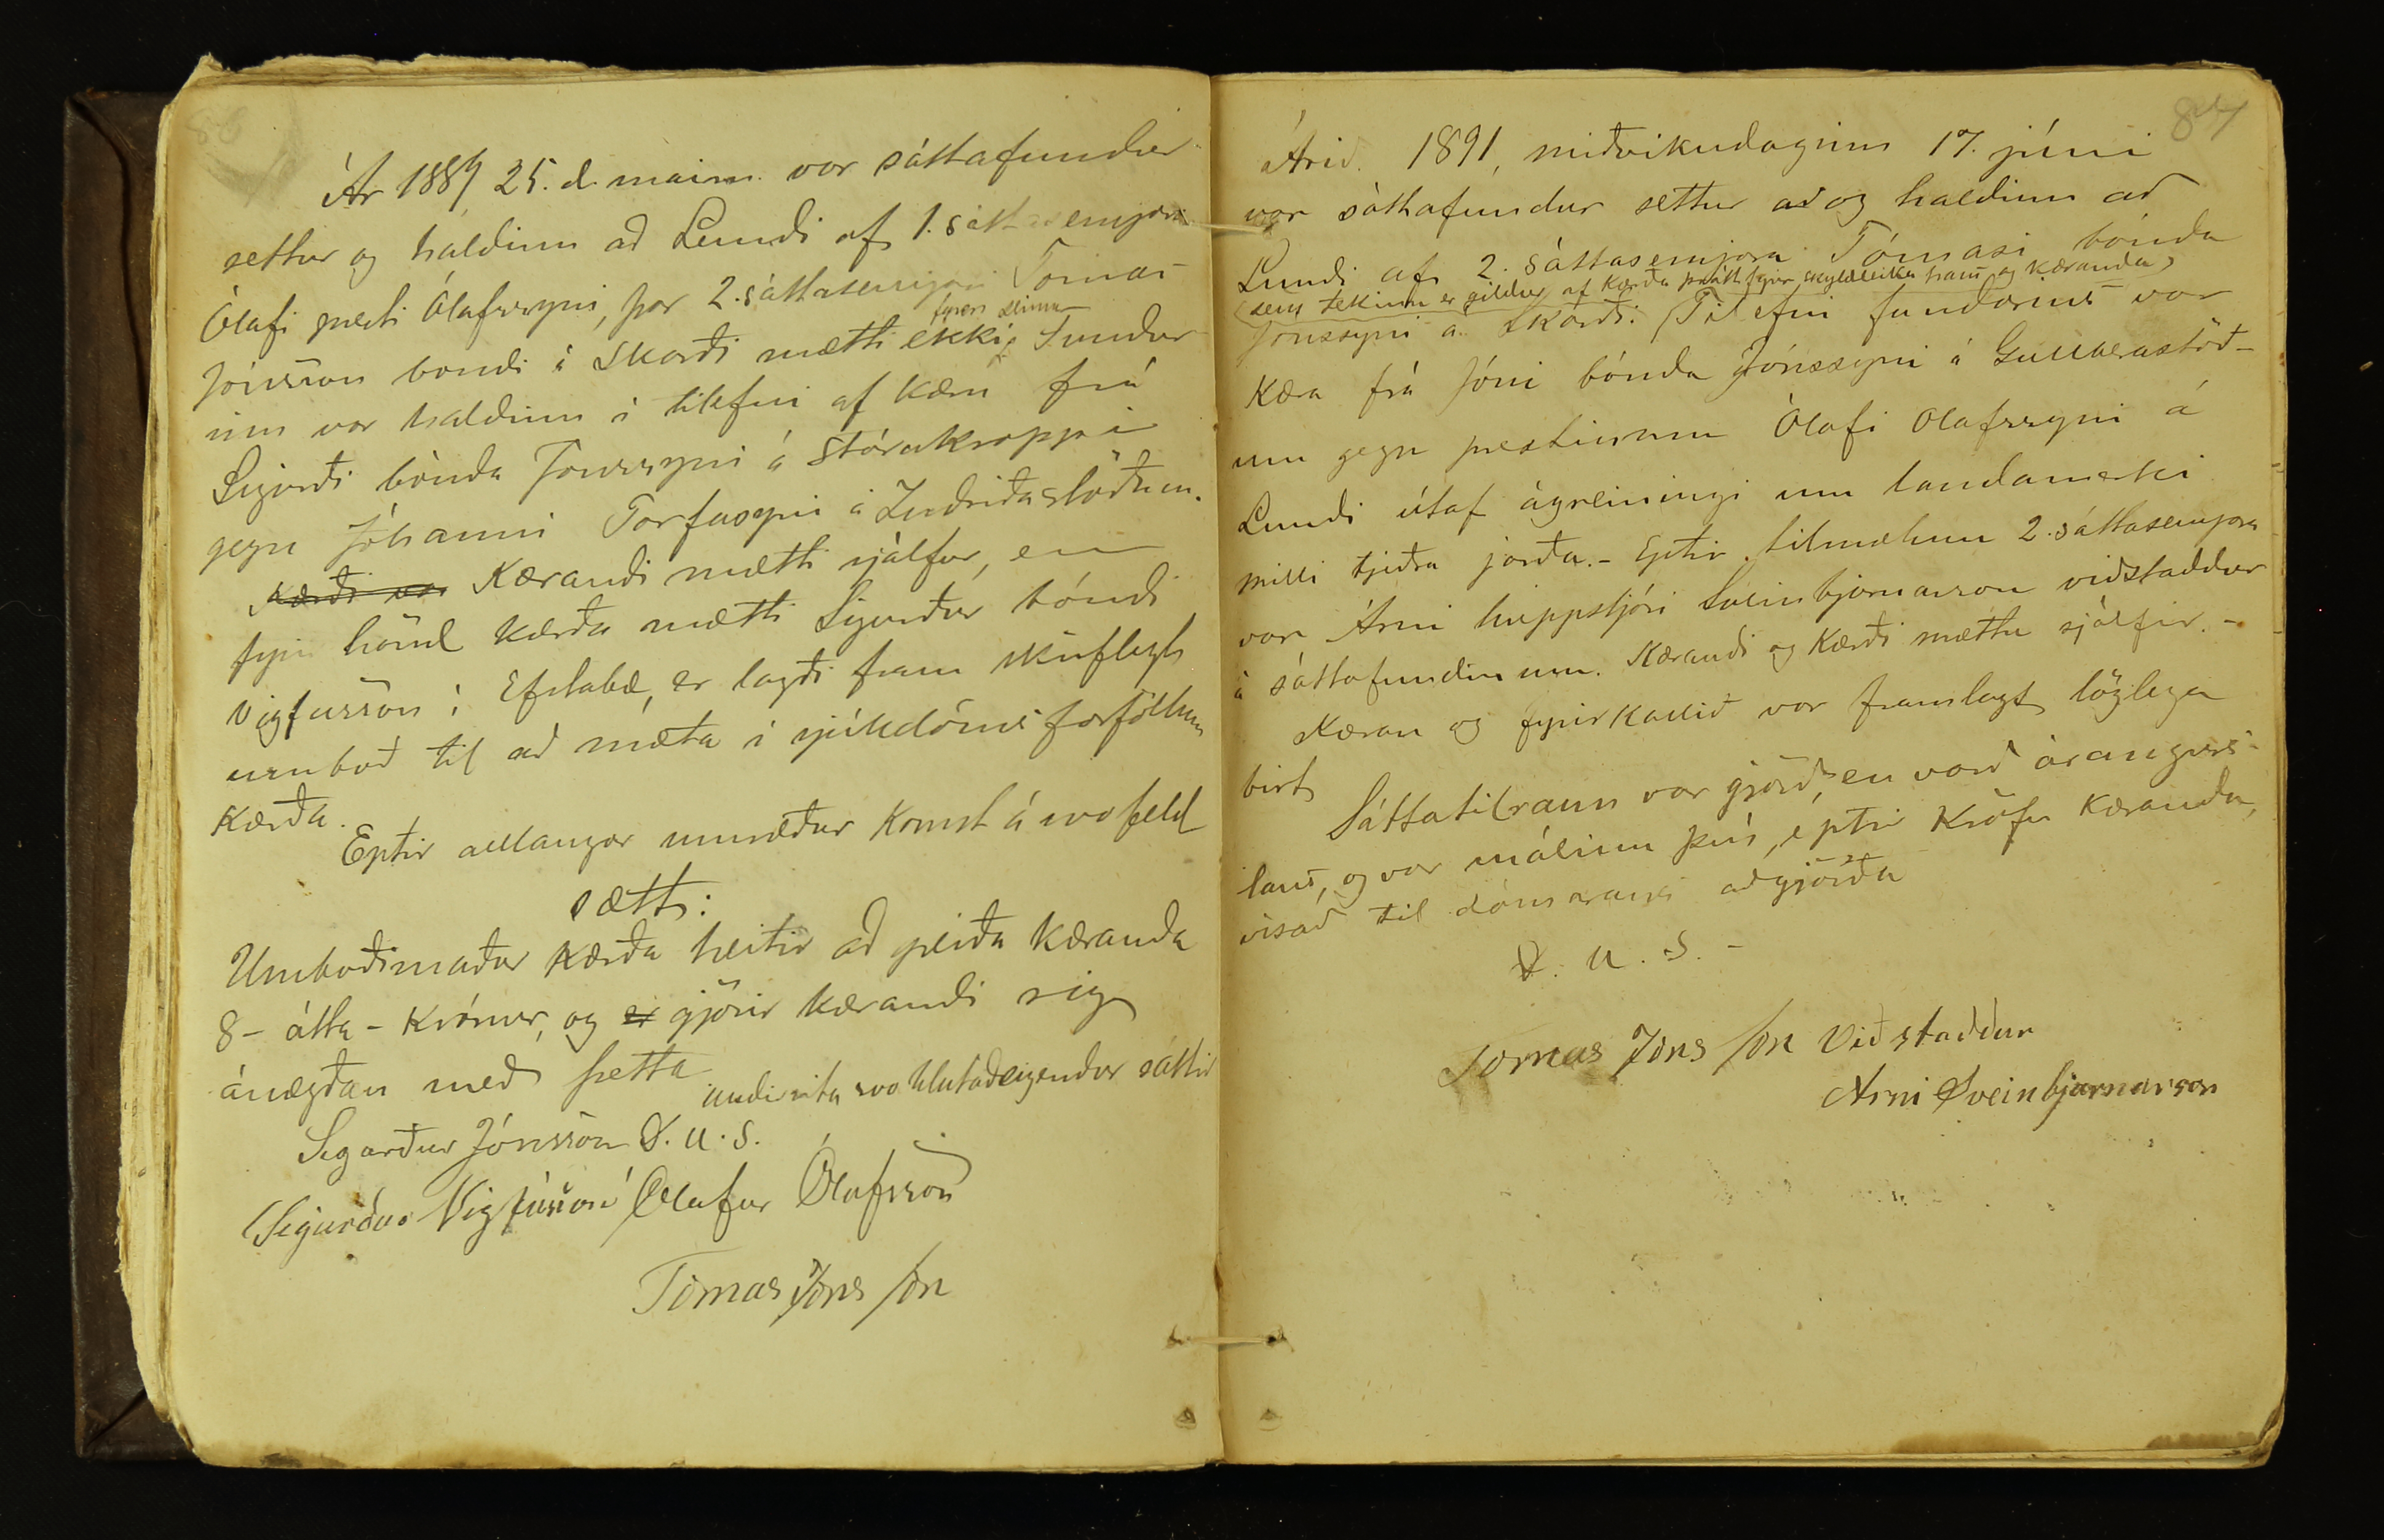 86
Ár 1889 25. d. maim. var sáttafundur
settur og haldinn að Lundi af 1. sáttasemjara
Ólafi presti Ólafssyni, þar 2. sáttasemjari Tómas
fyrri stefnu
Jónsson bóndi á Skarði mætti ekki. Fundur-
inn var haldinn í tilefni af kæru frá
Sigurði bónda Jónssyni á Stórakroppi
gegn Jóhanni Torfasyni á Indriðastöðum.
Kærði var Kærandi mætti sjálfur, en
fyrir hönd kærða mætti Sigurður bóndi
Vigfússon í Efstabæ, er lagði fram skriflegt
umboð til að mæta í sjúkdómsforföllum
kærða.
Eptir allangar umræður komst á svofeld
sætt:
Umboðsmaður kærða heitir að greiða kæranda
8 - átta - krónur, og er gjörir kærandi sig
ánægðan með þetta
undirrita svo hlutaðeigendur sáttir
Sigurður Jónsson D. u. s.
Sigurður Vigfússon Ólafur Ólafsson
Tómas Jóns son
87
Árið 1891, miðvikudaginn 17. júni
var sáttafundur settur að og haldinn að
Lundi af 2. sáttasemjara Tómasi bónda
(sem tekinn er gildur af kærða þrátt fyrir skyldleika hans og kæranda)
Jónssyni á Skarði. Tilefni fundarins var
kæra frá Jóni bónda Jónssyni á Gullberastöð-
um gegn prestinum Ólafi Olafssyni á
Lundi útaf ágreiningi um landamerki
milli tjeðra jarða. - Eptir tilmælum 2. sáttasemjara
var Árni hreppstjóri Sveinbjarnarson viðstaddur
á sáttafundinum. Kærandi og kærði mættu sjálfir. -
Kæran og fyrirkallið var framlagt löglega
birt
Sáttatilraun var gjörð, en varð árangurs-
laus, og var málinu því, eptir kröfu kæranda,
vísað til dómarans aðgjörða
D. u. s. -
Tomas Jóns son Viðstaddur
Arni Sveinbjarnarson